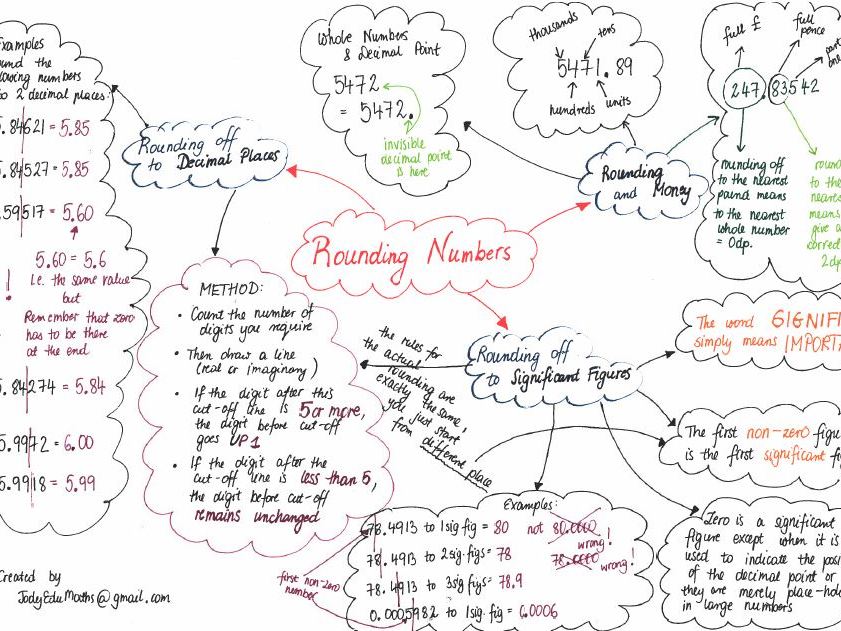 Examples
the
numbers
2 decimal places:
.84621 = 5.85
.84527 = 5.85
.59517 = 5.60
5.60 = 5.6
i.e. the same value
but
Remember that zero
has to be there
at the end
!
.84274 = 5.84
5.9972 = 6.00
5.9918 = 5.99
Created by
JodyEduMaths@gmail.com
Rounding off
to Decimal Places
METHOD:
• Count the number of
digits you require
• Then draw a line
(real or imaginary)
• If the digit after this
cut-off line is 5 or more,
the digit before cut-off
goes UP 1
• If the digit after the
cut-off line is less than 5,
the digit before cut-off
remains unchanged
Whole Numbers
& Decimal Point
5472
= 5472.
invisible
decimal point
is here
thousands
tens
5471.89
hundreds
units
Rounding
and Money
full £
full
pence
247.83542
rounding off
to the nearest
pound means
to the nearest
whole number
= 0dp.
to the
means
give a
2dp
Rounding Numbers
Rounding off
to Significant Figures
the rules for
the actual
rounding are
exactly the same,
you just start
from different place
The word
simply means
The first non-zero
is the first significant
Zero is a significant
figure except when it is
used to indicate the
of the decimal point or
they are merely
in large numbers
Examples:
78.4913 to 1 sig fig = 80 not 80.0000
wrong!
78.4913 to 2 sig. figs = 78 78.0000
wrong!
78.4913 to 3 sig figs = 78.9
0.0005982 to 1 sig. fig = 0.0006
first non-zero
number